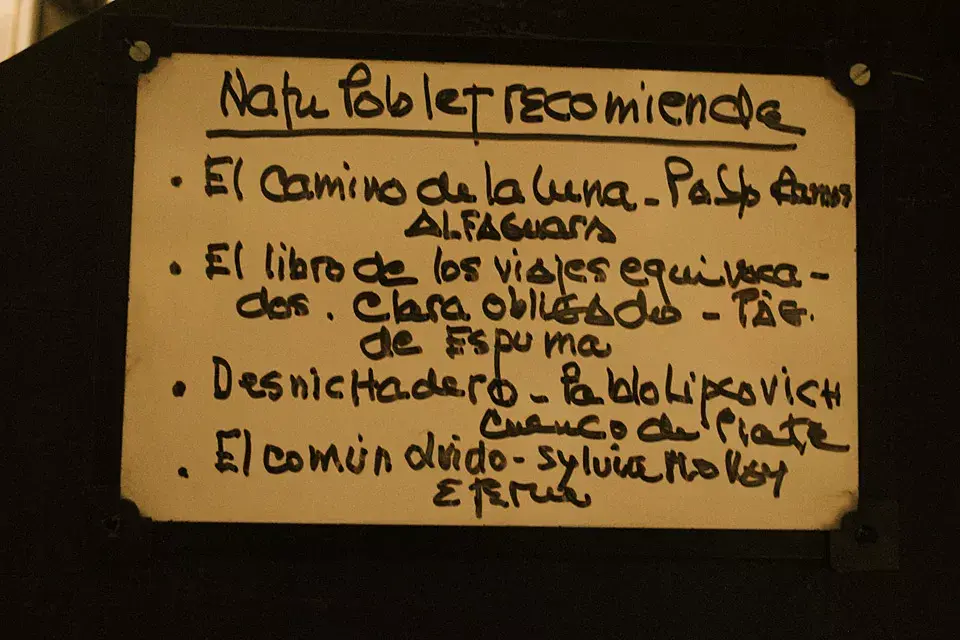 Natu Poblet recomienda
• El camino de la luna - Pablo Ramos
ALFAGUARA
• El libro de los viajes equivoca-
dos. Clara obligado - PÁG.
de Espuma
• Desnichadero - Pablo Lipcovich
Cuenco de Plata
• El común olvido - Sylvia Molloy
Eterna